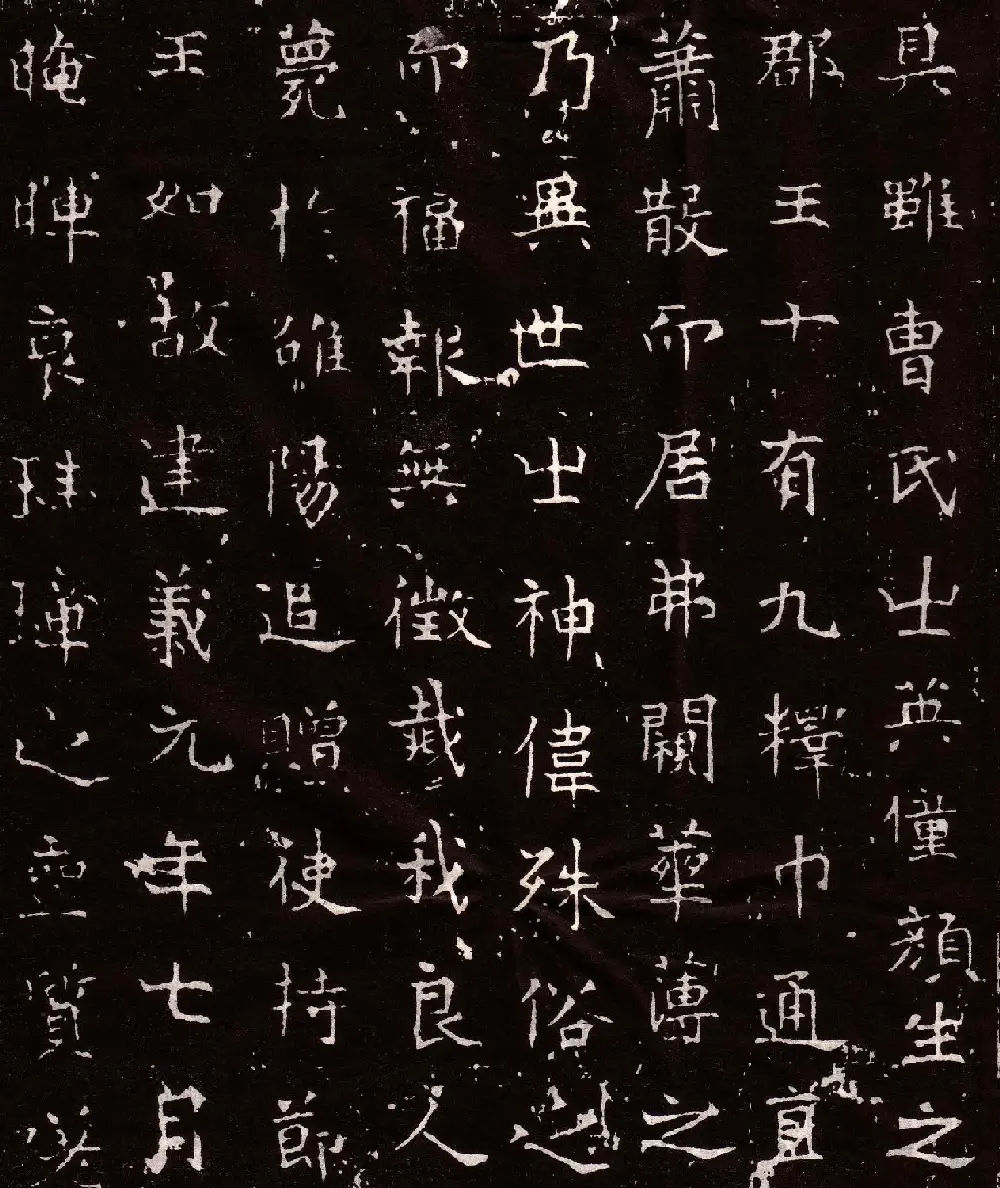 具雖曹氏㞢英僮顏生之
郡王十有九釋巾通直
蕭散而居弗闚華薄之
乃異世㞢神偉殊俗
而福報無徵截我良人
薨於雒陽追贈使持節
王如故建義元年七月
晻暉哀珪璋之質